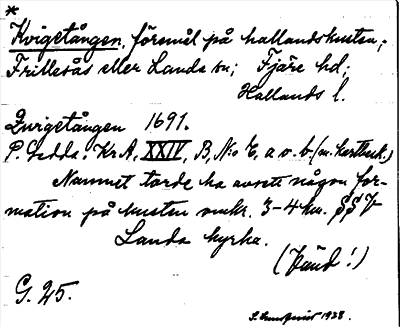 *
Kvigetången, föremål på hallandskusten;
Frillesås eller Landa sn; Fjäre hd;
Hallands l.
Qvigetången 1691.
P. Gedda. Kr.A, XXIV, B, No E, a o. b (m. kartbeskr.)
Namnet torde ha avsett någon for-
mation på kusten omkr. 3-4 km. SSV
Landa kyrka.
(Vänd!)
G. 25.
1928.